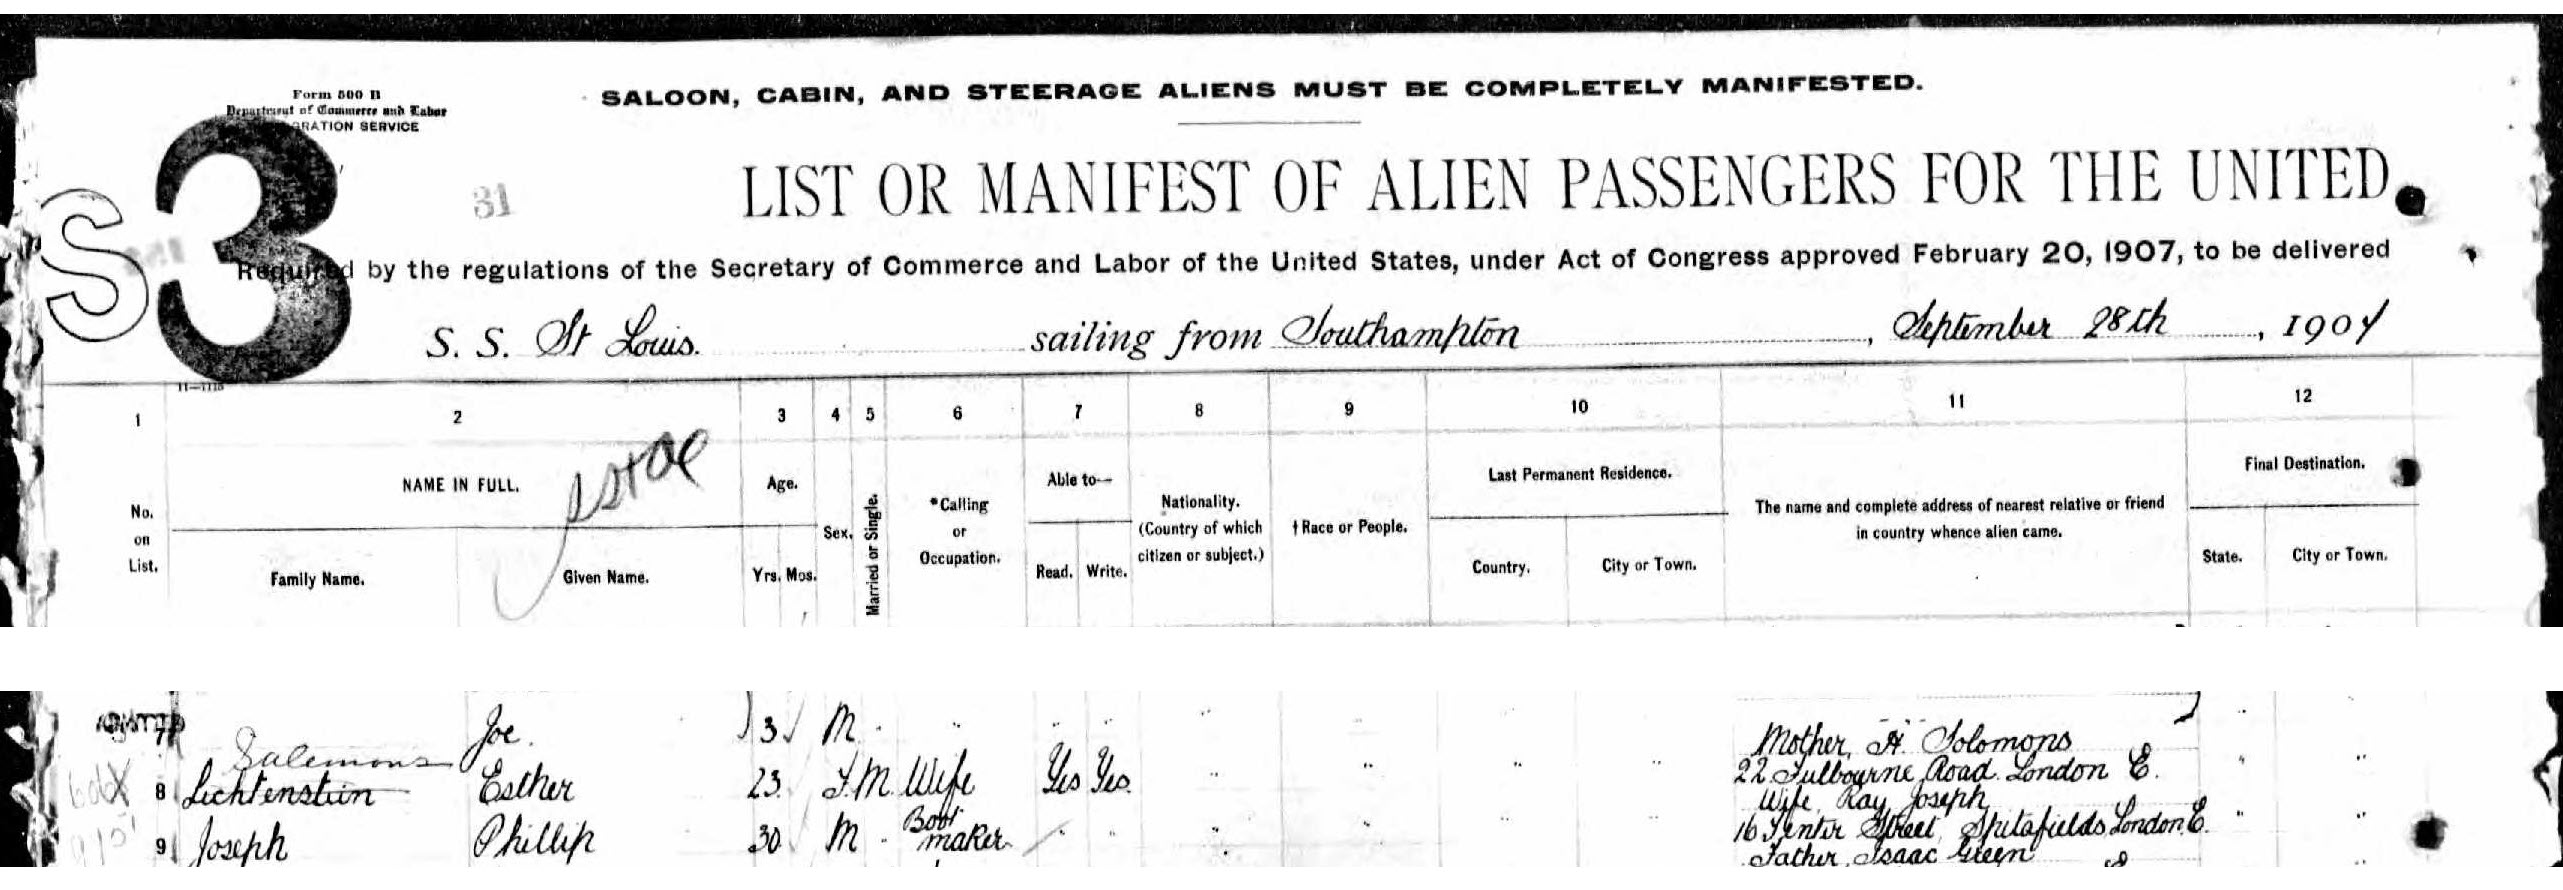 Form 500 B
Department of Commerce and Labor
GRATION SERVICE
SALOON, CABIN, AND STEERAGE ALIENS MUST BE COMPLETELY MANIFESTED.
S 3
31
LIST OR MANIFEST OF ALIEN PASSENGERS FOR THE UNITED
Required by the regulations of the Secretary of Commerce and Labor of the United States, under Act of Congress approved February 20, 1907, to be delivered
S. S. St Louis. sailing from Southampton, September 28th, 1907
1 2 3 4 5 6 7 8 9 10 11 12
No. on List.
NAME IN FULL.
Family Name. Given Name.
Age.
Yrs. Mos.
Sex.
Married or Single.
*Calling or Occupation.
Able to—
Read. Write.
Nationality. (Country of which citizen or subject.)
†Race or People.
Last Permanent Residence.
Country. City or Town.
The name and complete address of nearest relative or friend in country whence alien came.
Final Destination.
State. City or Town.
7 Joe. 3 M " " " " " " " "
Salomons
Mother, H. Solomons
8 Lichtenstein Esther 23 F. M. Wife Yes Yes " " " " 22 Fulbourne Road. London E. " "
Wife, Ray Joseph
9 Joseph Phillip 30 M " Boot maker " " " " " " 16 Tenter Street, Spitafields, London, E. " "
Father, Isaac Green